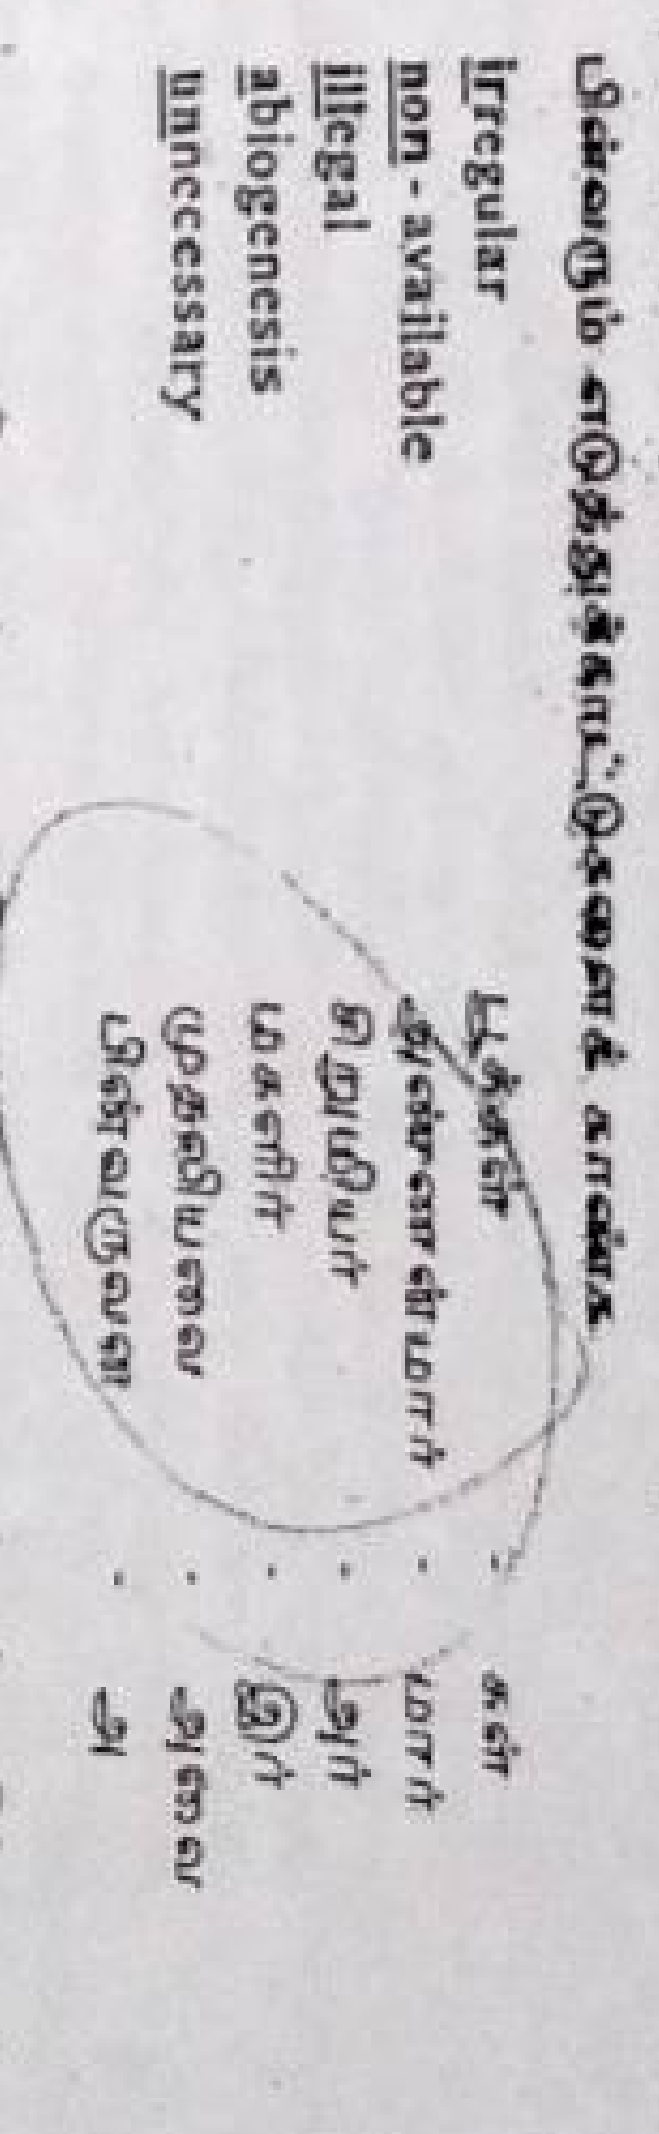 பின்வரும் எடுத்துக்காட்டுகளைக் காண்க
irregular பூக்கள் - கள்
non - available அண்ணன்மார் - மார்
illegal சிறுமியர் - அர்
abiogenesis மகளிர் - இர்
unnecessary முதலியவை - அவை
பின்வருவன - அ